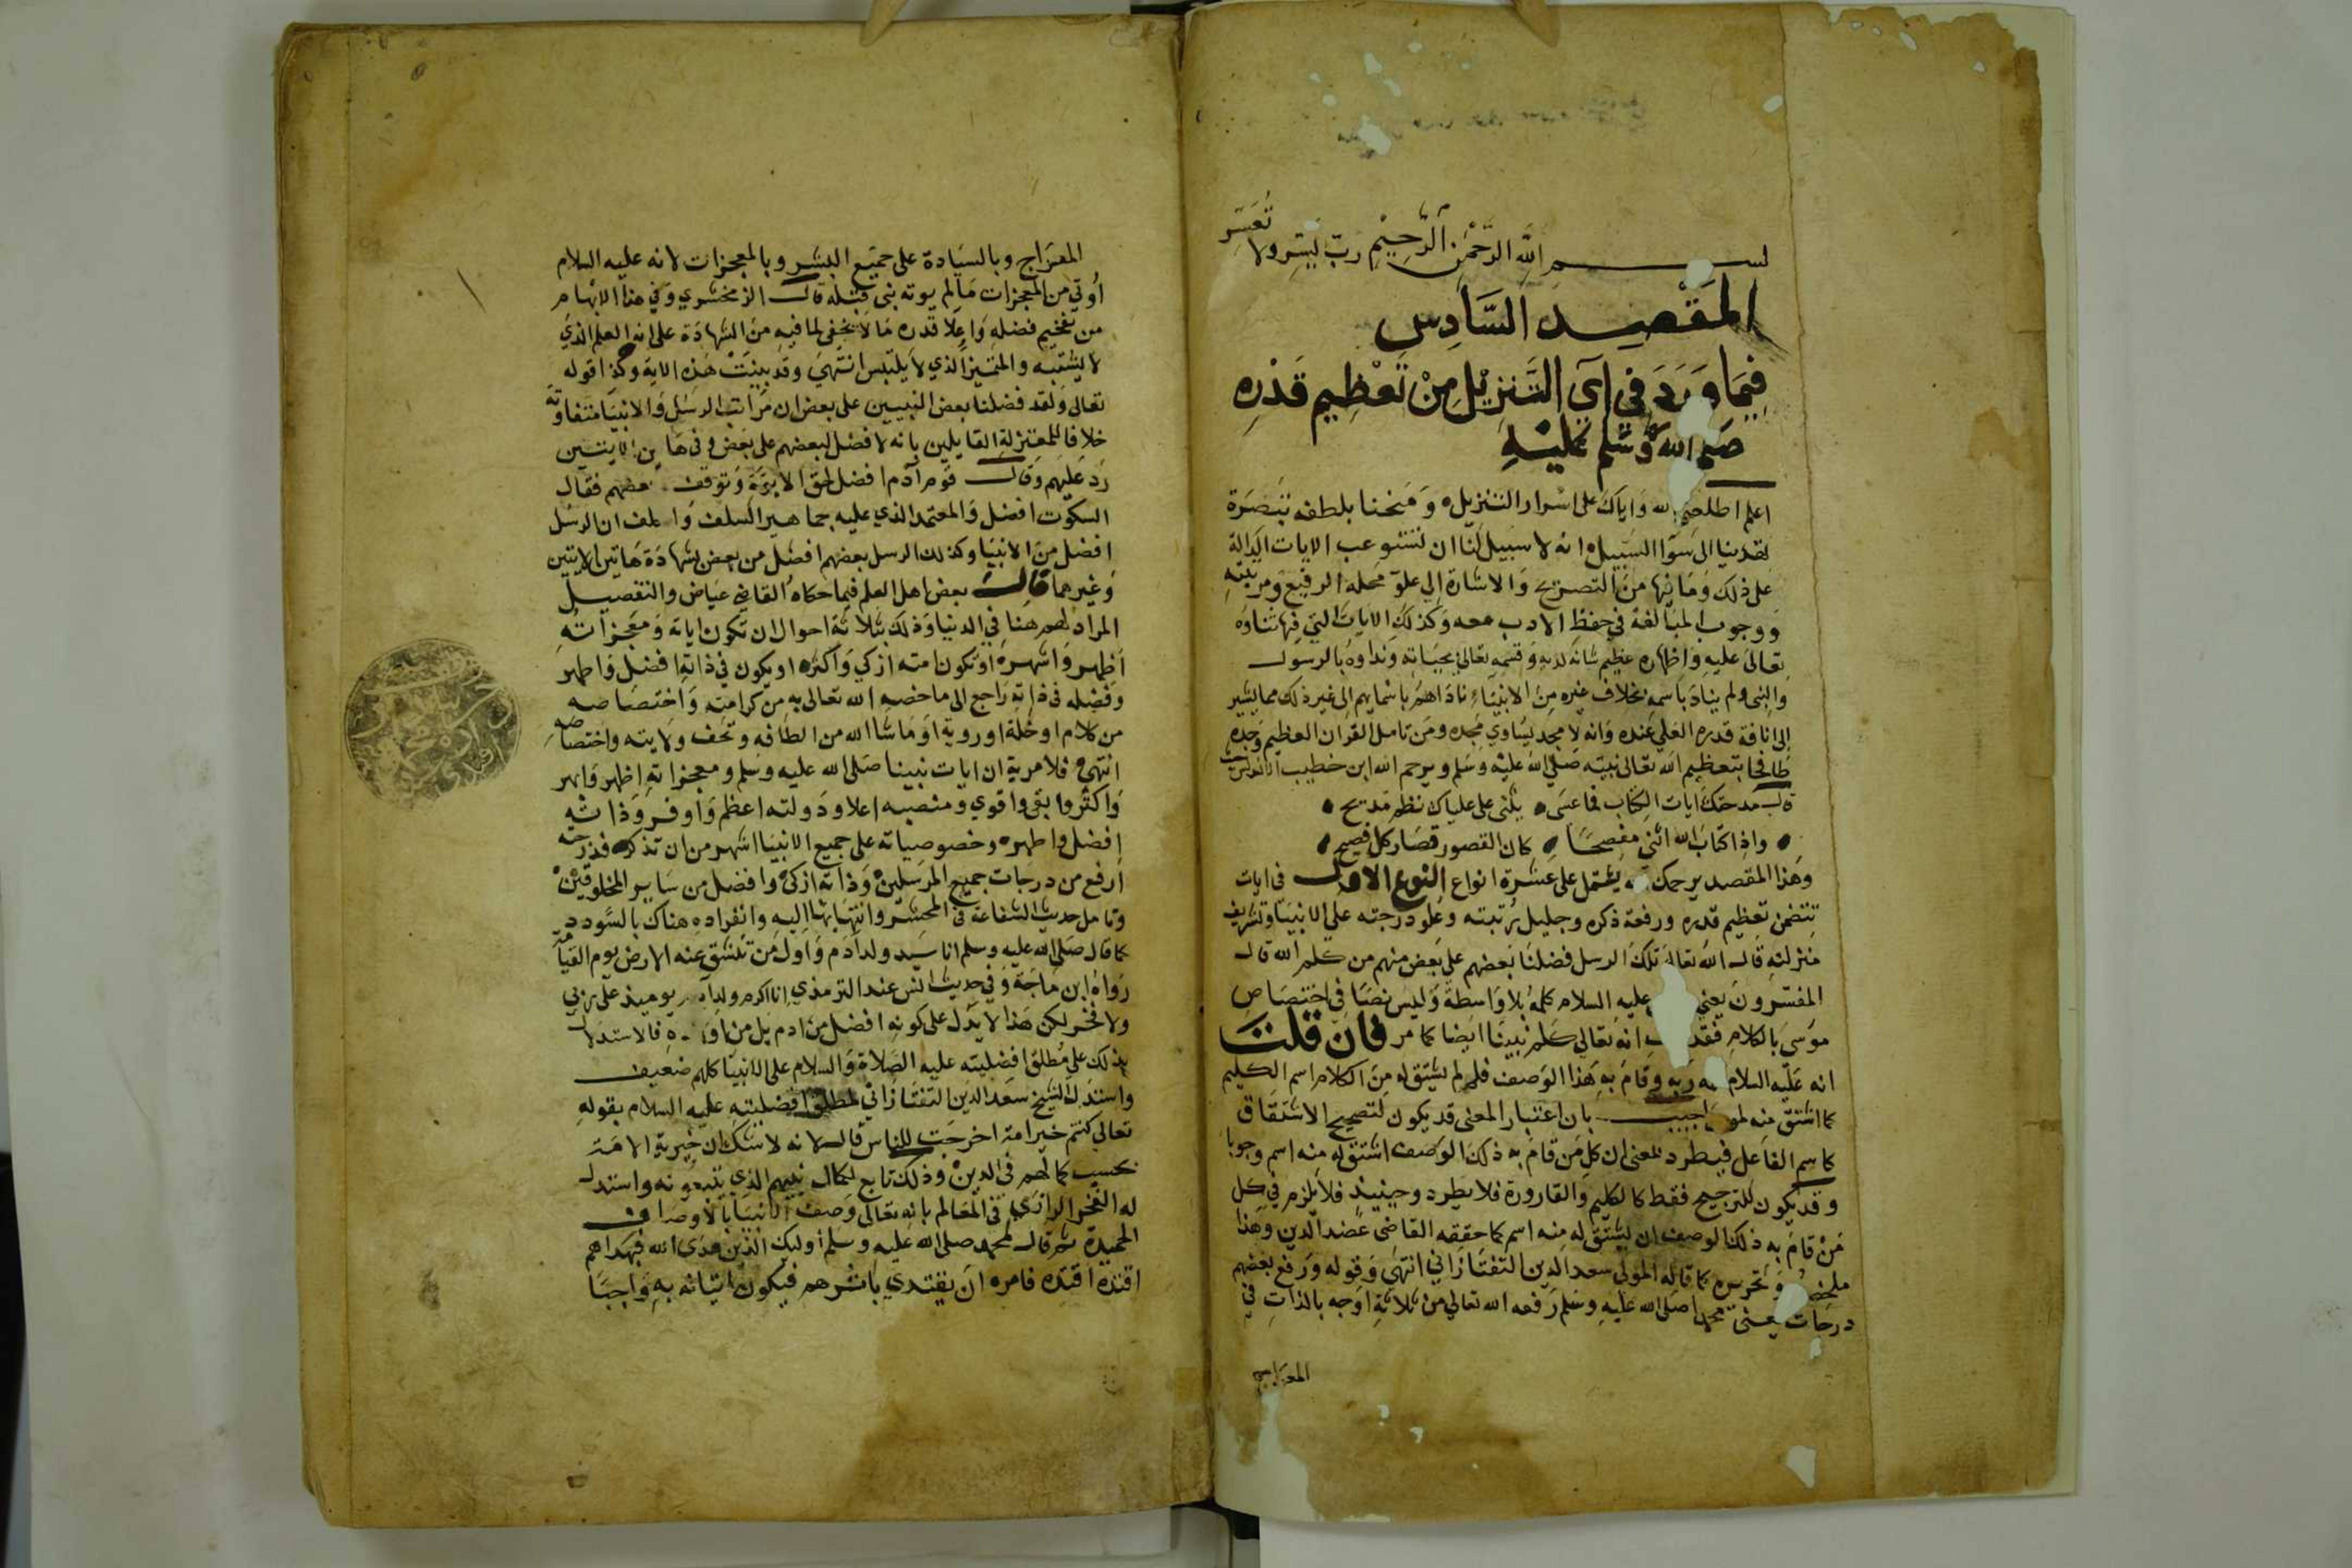 بسم الله الرحمن الرحيم رب يسر ولا تعسر
المقصد السادس
فيما ورد في آي التنزيل من تعظيم قدره
صلى الله وسلم عليه
اعلم اطلعني الله واياك على اسرار التنزيل ومنحنا بلطفه تبصرة
تهدينا الى سوآ السبيل انه لا سبيل لنا ان نستوعب الايات الدالة
على ذلك وما فيها من التصريح والاشارة الي علو محله الرفيع ومرتبته
ووجوب المبالغة في حفظ الادب معه وكذلك الايات التي فيها ثناوه
تعالى عليه واظهاره عظيم شانه لديه وقسمه تعالى بحياته ونداوه بالرسول
والنبى ولم يناد باسمه بخلاف غيره من الانبياء ناداهم باسمايهم الى غير ذلك مما يشير
الى انافة قدره العلي عنده وانه لا مجد يساوي مجده ومن تامل القران العظيم وجده
طافحا بتعظيم الله تعالى لنبيه صلى الله عليه وسلم ويرحم الله ابن خطيب الاندلس حيث
قال مدحتك ايات الكتاب فما عسى يثنى على علياك نظم مديح
واذا كتاب الله اثنى مفصحا كان القصور قصار كل فصيح
وهذا المقصد يرحمك الله يشتمل على عشرة انواع النوع الاول في ايات
تتضمن تعظيم قدره ورفعة ذكره وجليل رتبته وعلو درجته على الانبيا وتشريف
منزلته قال الله تعالى تلك الرسل فضلنا بعضهم على بعض منهم من كلم الله قال
المفسرون يعني عليه السلام كلمه بلا واسطة وليس نصا في اختصاص
موسى بالكلام فقد انه تعالي كلم نبينا ايضا كما مر فان قلت
انه عليه السلام ربه وقام به هذا الوصف فلم لم يشتق له من الكلام اسم الكليم
كما اشتق منه لموسى اجيب بان اعتبار المعنى قد يكون لتصحيح الاشتقاق
كاسم الفاعل فيطرد بمعنى ان كل من قام به ذلك الوصف اشتق له منه اسم وجوبا
وقد يكون للترجيح فقط كالكليم والقارورة فلا يطرد وحينيذ فلا يلزم في كل
من قام به ذلك الوصف ان يشتق له منه اسم كما حققه القاضى عضد الدين وهذا
ملخصه وتحريره كما قاله المولى سعد الدين التفتازاني انتهى وقوله ورفع بعضهم
درجات يعنى محمدا صلى الله عليه وسلم رفعه الله تعالي من ثلاثة اوجه بالذات في
المعراج
المعراج وبالسيادة على جميع البشر وبالمعجزات لانه عليه السلام
أوتي من المعجزات مالم يوته نبي قبله قال الزمخشري وفي هذا الابهام
من تفخيم فضله واعلا قدره ما لا يخفى لما فيه من الشهادة على انه العلم الذي
لا يشتبه والمتميز الذي لا يلتبس انتهى وقد بينت هذه الاية وكذا قوله
تعالى ولقد فضلنا بعض النبيين على بعض ان مراتب الرسل والانبيا متفاوتة
خلافا للمعتزلة القايلين بانه لا فضل لبعضهم على بعض وفى هاتين الايتين
رد عليهم وقال قوم آدم افضل لحق الابوة وتوقف بعضهم فقال
السكوت افضل والمعتمد الذي عليه جماهير السلف والخلف ان الرسل
افضل من الانبيا وكذلك الرسل بعضهم افضل من بعض بشهادة هاتين الايتين
وغيرهما قال بعض اهل العلم فيما حكاه القاضي عياض والتفضيل
المراد لهم هنا في الدنيا وذلك بثلاثة احوال ان تكون اياته ومعجزاته
اظهر واشهر او تكون امته ازكي واكثر او يكون في ذاته افضل واطهر
وفضله في ذاته راجع الى ما خصه الله تعالى به من كرامته واختصاصه
من كلام او خلة او روية او ما شا الله من الطافه وتحف ولايته واختصاصه
انتهى فلا مرية ان ايات نبينا صلى الله عليه وسلم ومعجزاته اظهر وابهر
واكثر وابقى واقوي ومنصبه اعلا ودولته اعظم واوفر وذاته
افضل واطهر وخصوصياته على جميع الانبيا اشهر من ان تذكر فدرجته
ارفع من درجات جميع المرسلين وذاته ازكى وافضل من ساير المخلوقين
وتامل حديث الشفاعة في المحشر وانتهايها اليه وانفراده هناك بالسودد
كما قال صلى الله عليه وسلم انا سيد ولد ادم واول من تنشق عنه الارض يوم القيامة
رواه ابن ماجة وفي حديث انس عند الترمذي انا اكرم ولد آدم يوميذ على ربي
ولا فخر لكن هذا لا يدل على كونه افضل من ادم بل من اولاده فالاستدلال
بذلك على مطلق افضليته عليه الصلاة والسلام على الانبيا كلهم ضعيف
واستدل الشيخ سعد الدين التفتازاني لمطلق افضليته عليه السلام بقوله
تعالي كنتم خير امة اخرجت للناس قال لانه لا شك ان خيرية الامة
بحسب كمالهم في الدين وذلك تابع لكمال نبيهم الذي يتبعونه واستدل
له الفخر الرازي في المعالم بانه تعالى وصف الانبيا بالاوصاف
الحميدة ثم قال لمحمد صلى الله عليه وسلم أوليك الذين هدى الله فبهداهم
اقتده اقتده فامره ان يقتدي باثرهم فيكون اتيانه به واجبا